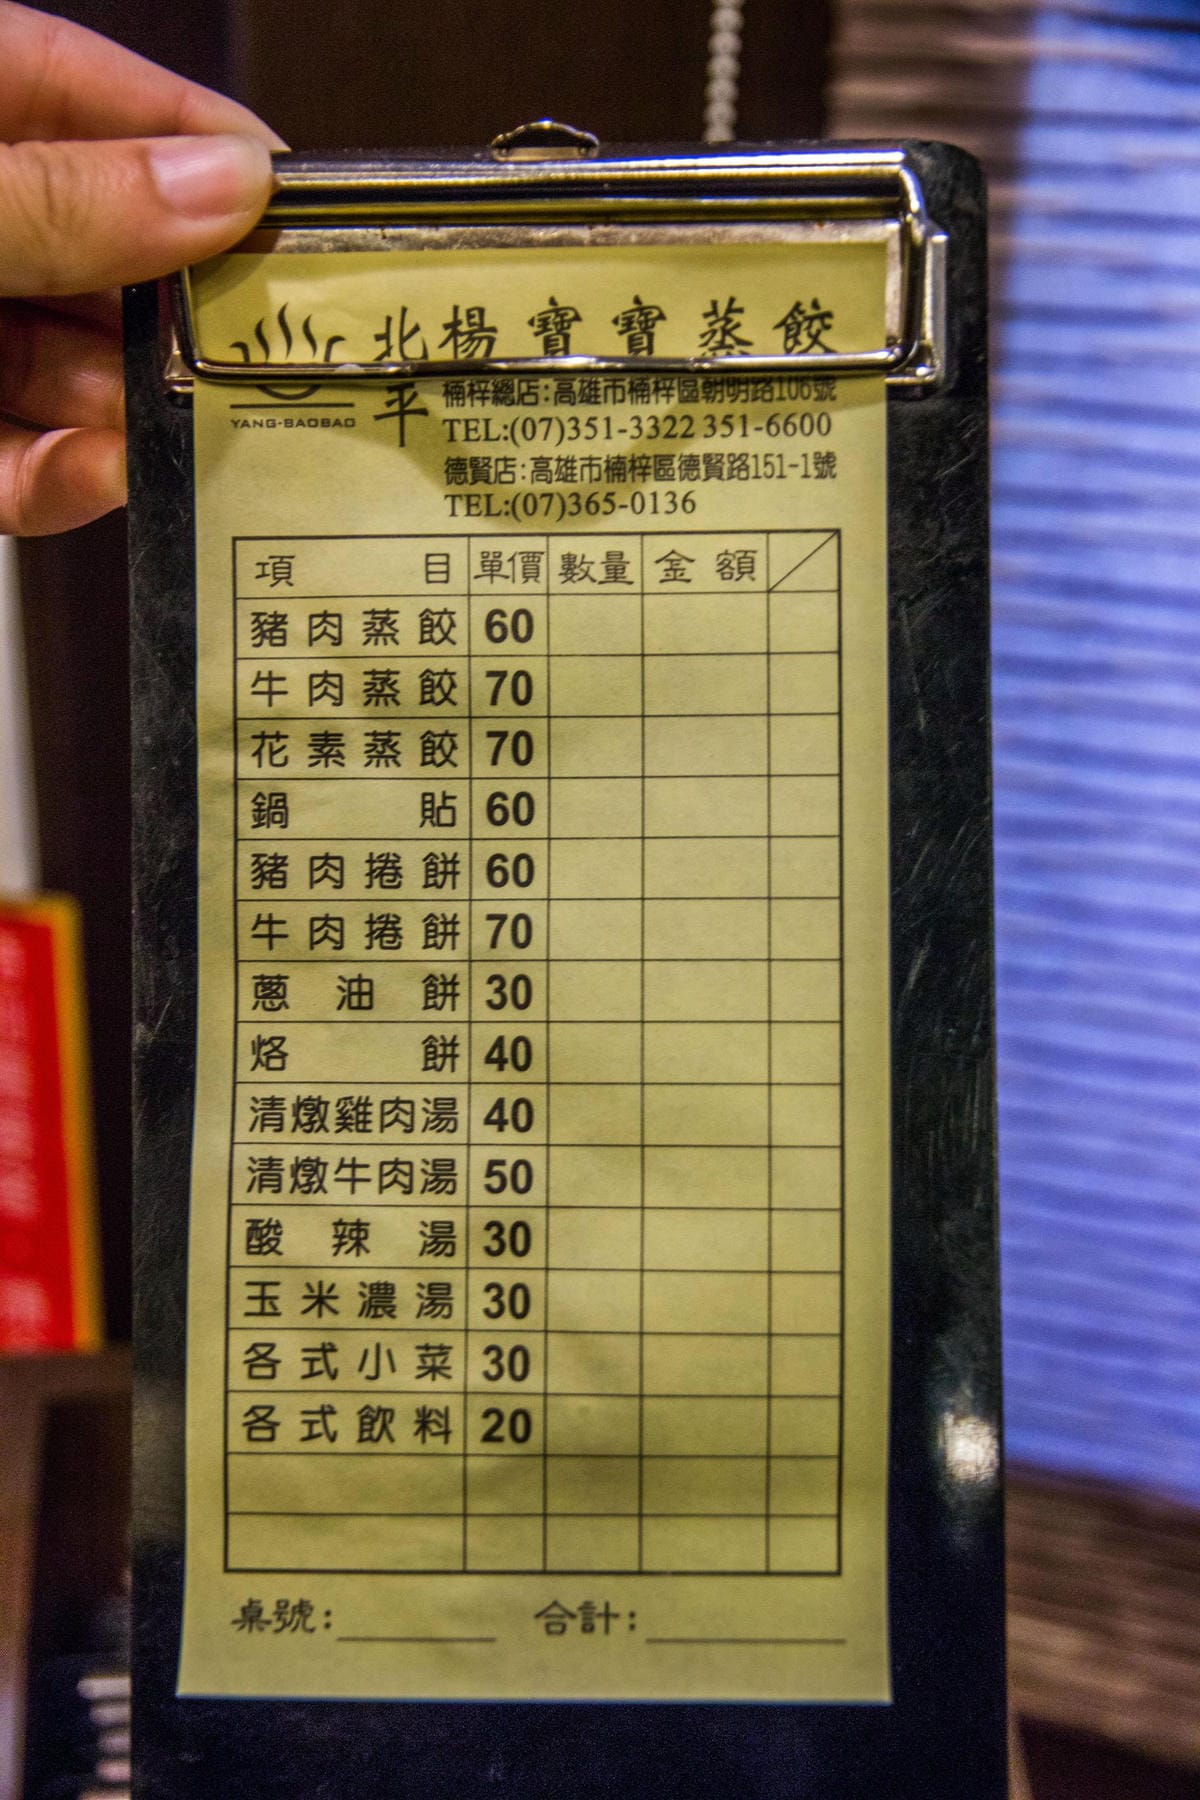 北平 楊寶寶蒸餃
YANG-BAOBAO
楠梓總店:高雄市楠梓區朝明路106號
TEL:(07)351-3322 351-6600
德賢店:高雄市楠梓區德賢路151-1號
TEL:(07)365-0136
項目 單價 數量 金額
豬肉蒸餃 60
牛肉蒸餃 70
花素蒸餃 70
鍋貼 60
豬肉捲餅 60
牛肉捲餅 70
蔥油餅 30
烙餅 40
清燉雞肉湯 40
清燉牛肉湯 50
酸辣湯 30
玉米濃湯 30
各式小菜 30
各式飲料 20
桌號: 合計: